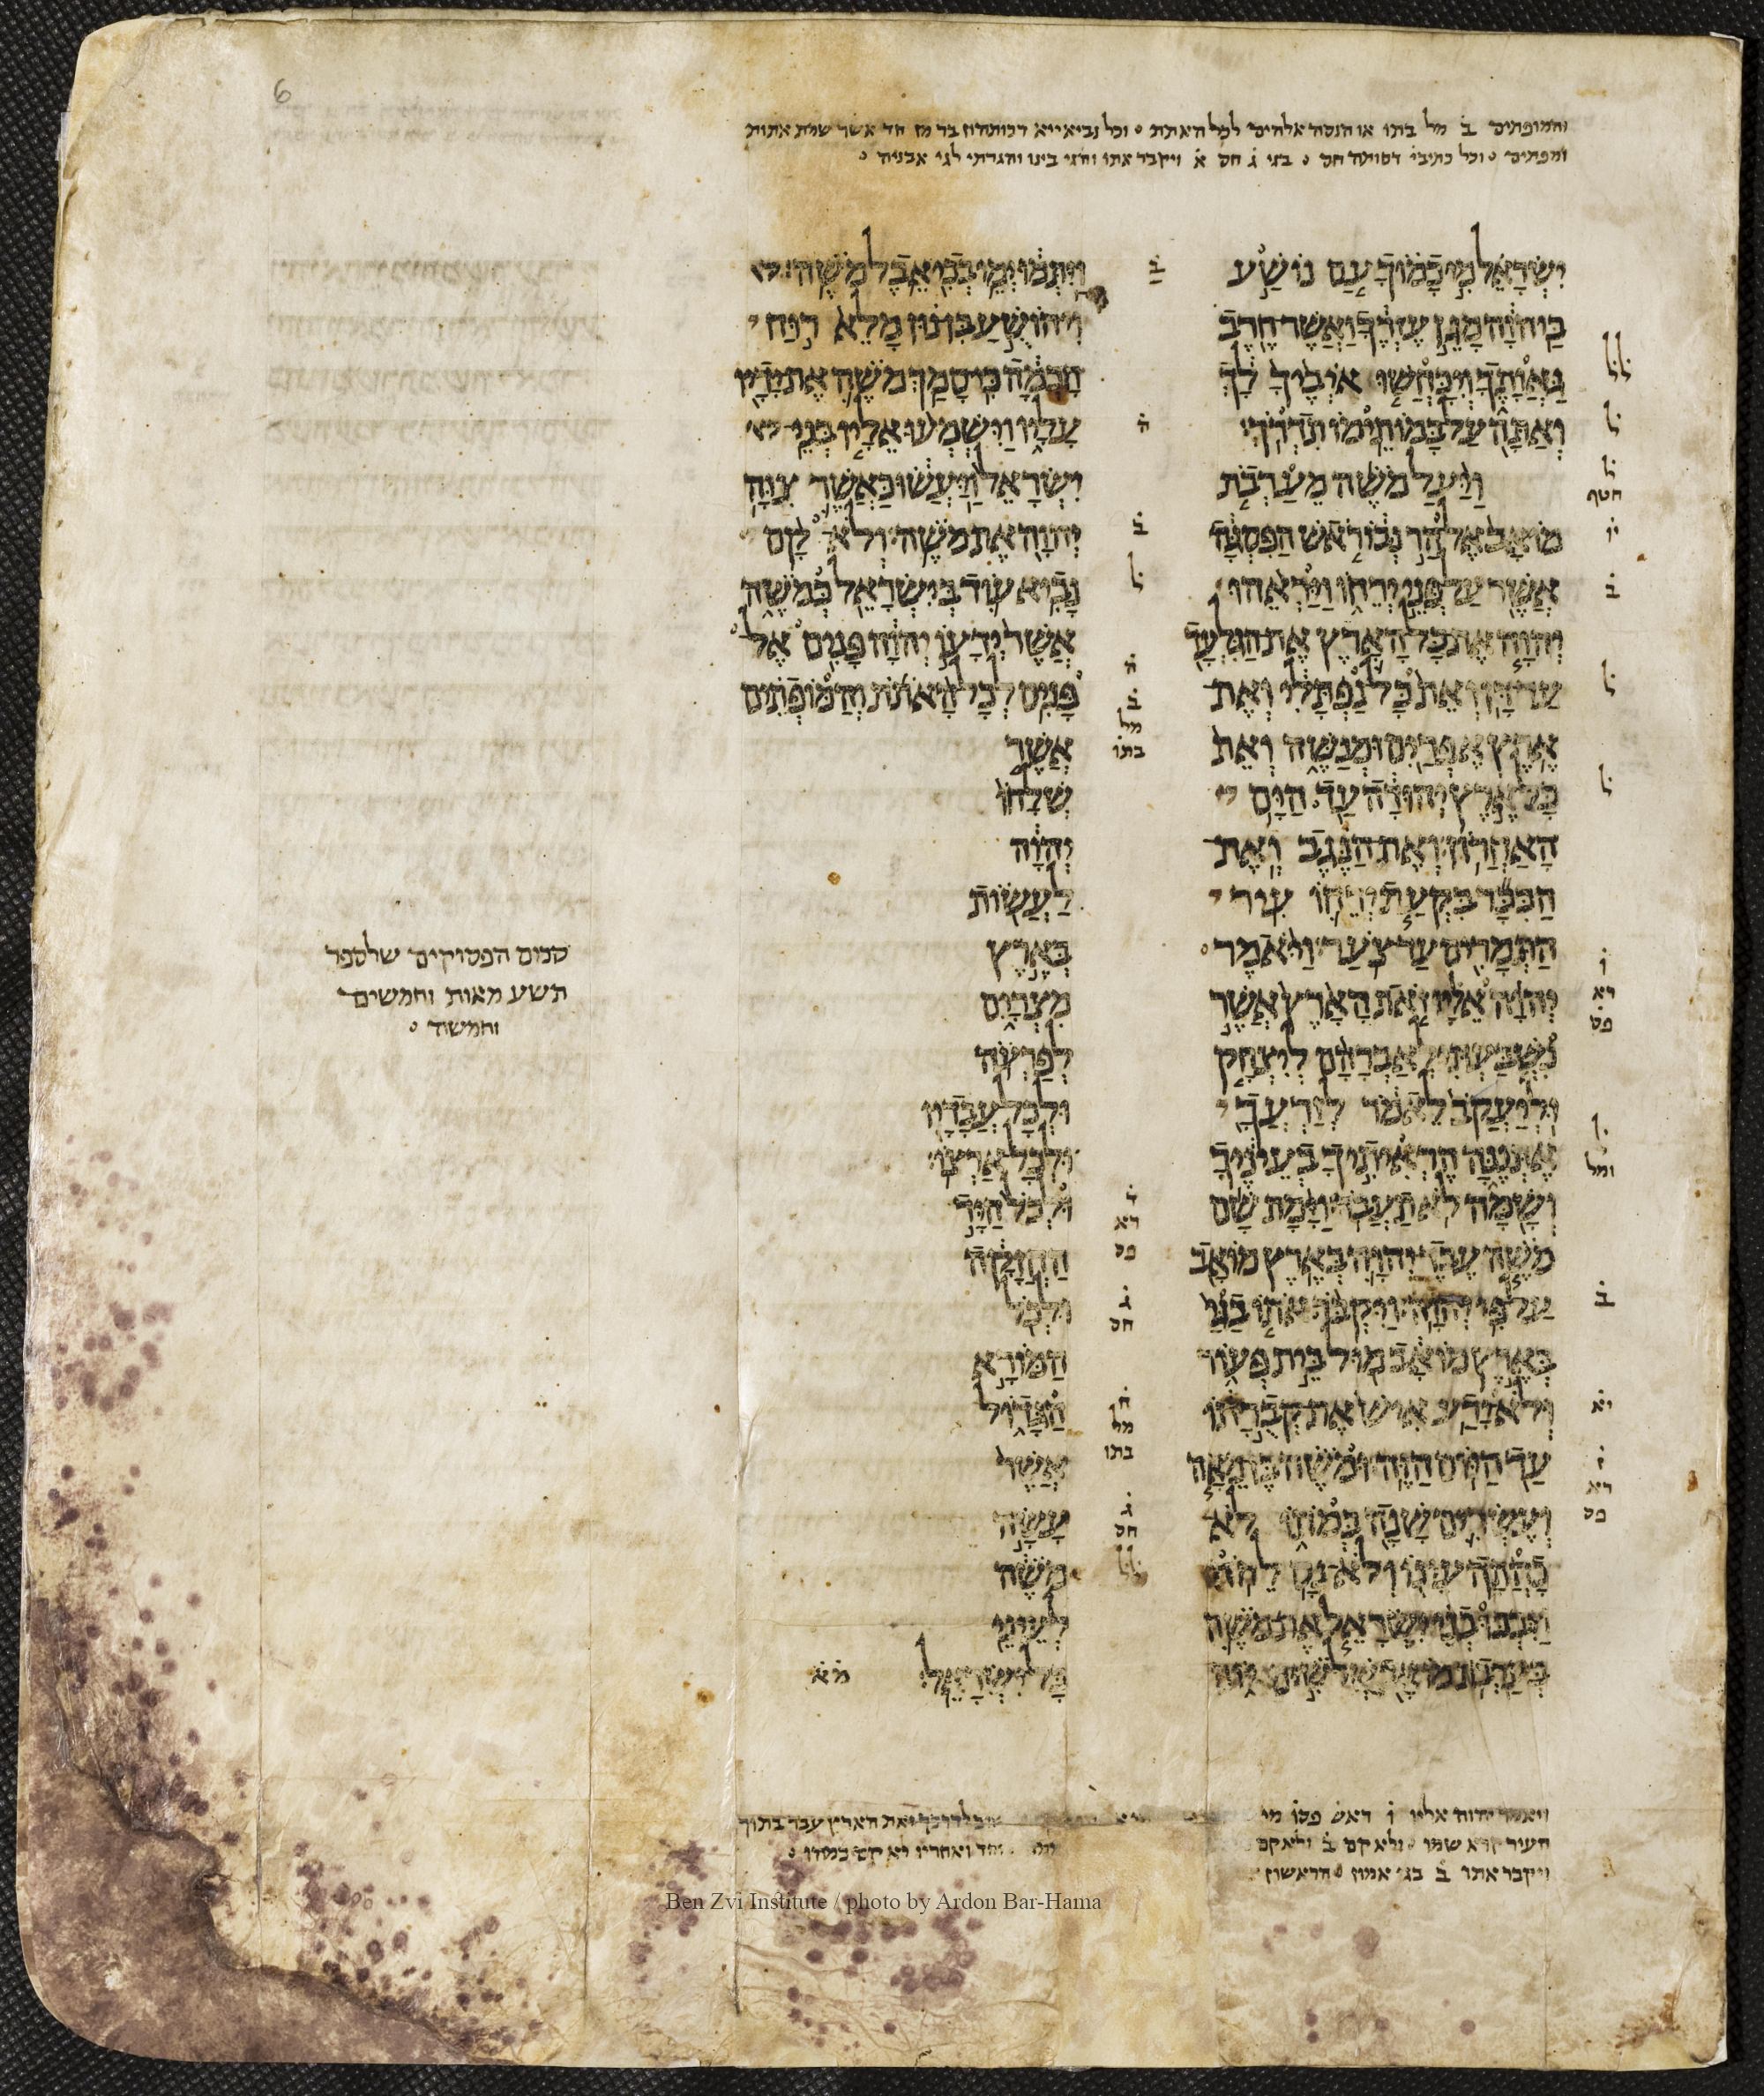 והמופתים ב מל בתו או הנסה אלהים לכל האתת וכל נביאייא דכותהון בר מן חד אשר שמת אתות
ומפתים וכל כתיבי דכותה חס בגי ג חס א ויקבר אתו והגרתי לגי אבניה
ישראל מי כמוך עם נושע
ביהוה מגן עזרך ואשר חרב
גאותך ויכחשו איביך לך
ואתה על במותימו תדרך
ויעל משה מערבת
מואב אל הר נבו ראש הפסגה
אשר על פני ירחו ויראהו
יהוה את כל הארץ את הגלעד
עד דן ואת כל נפתלי ואת
ארץ אפרים ומנשה ואת
כל ארץ יהודה עד הים
האחרון ואת הנגב ואת
הככר בקעת ירחו עיר
התמרים עד צער ויאמר
יהוה אליו זאת הארץ אשר
נשבעתי לאברהם ליצחק
וליעקב לאמר לזרעך
אתננה הראיתיך בעיניך
ושמה לא תעבר וימת שם
משה עבד יהוה בארץ מואב
על פי יהוה ויקבר אתו בגי
בארץ מואב מול בית פעור
ולא ידע איש את קברתו
עד היום הזה ומשה בן מאה
ועשרים שנה במתו לא
כהתה עינו ולא נס לחה
ויבכו בני ישראל את משה
בערבת מואב שלשים יום
ויתמו ימי בכי אבל משה
ויהושע בן נון מלא רוח
חכמה כי סמך משה את ידיו
עליו וישמעו אליו בני
ישראל ויעשו כאשר צוה
יהוה את משה ולא קם
נביא עוד בישראל כמשה
אשר ידעו יהוה פנים אל
פנים לכל האתת והמופתים
אשר
שלחו
יהוה
לעשות
בארץ
מצרים
לפרעה
ולכל עבדיו
ולכל ארצו
ולכל היד
החזקה
ולכל
המורא
הגדול
אשר
עשה
משה
לעיני
כל ישראל
סכום הפסוקים שלספר
תשע מאות וחמשים
וחמשה
ויאמר יהוה אליו ז ראש פסו
העיר קרא שמו ולא קם ב ולא קם
ויקבר אתו ב בגי אמון הראשון
זאת הארץ עבר בתוך
ואחריו לא קם כמהו
6
Ben Zvi Institute / photo by Ardon Bar-Hama